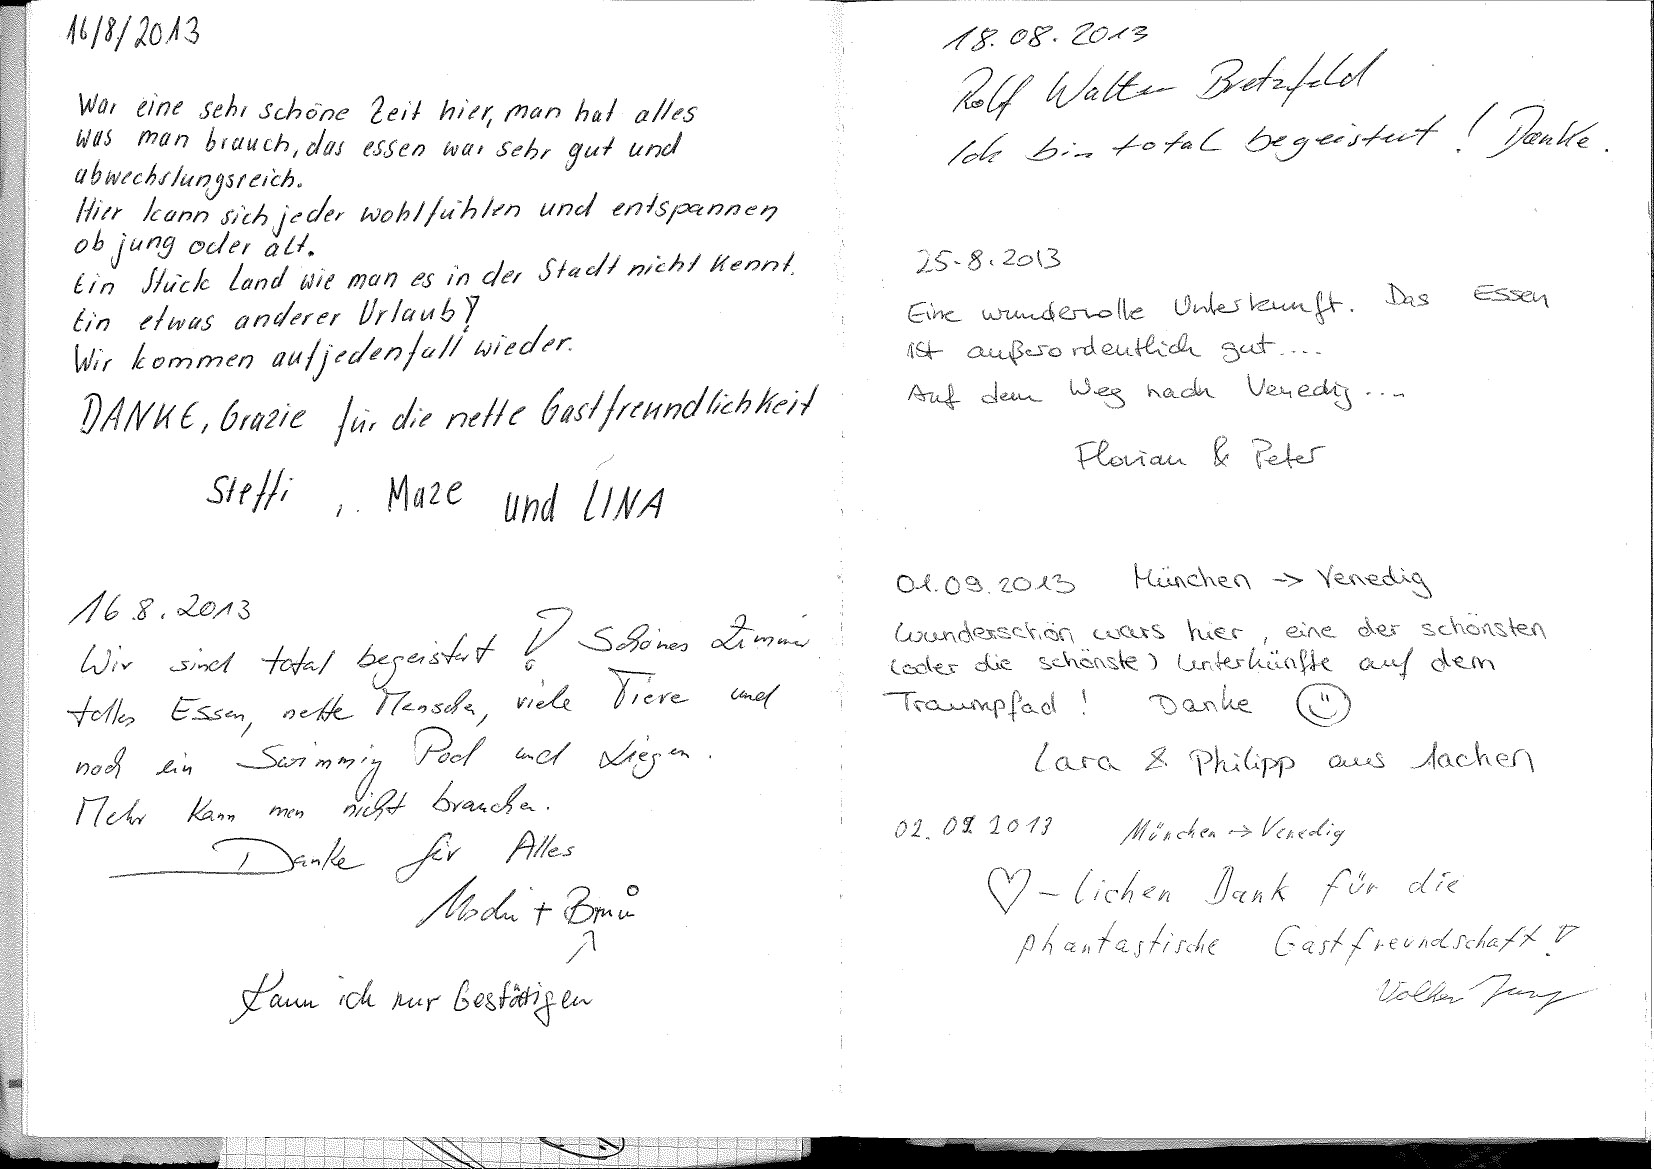 16/8/2013
War eine sehr schöne Zeit hier, man hat alles
was man brauch, das essen war sehr gut und
abwechslungsreich.
Hier kann sich jeder wohlfühlen und entspannen
ob jung oder alt.
Ein Stück Land wie man es in der Stadt nicht kennt.
Ein etwas anderer Urlaub!
Wir kommen aufjedenfall wieder.
DANKE, Grazie für die nette Gastfreundlichkeit
Steffi, Maze und LINA
16.8.2013
Wir sind total begeistert! Schönes Zimmer
tolles Essen, nette Menschen, viele Tiere und
noch ein Swimming Pool und Liegen.
Mehr kann man nicht brauchen.
Danke für Alles
+
Kann ich nur bestätigen
18.08.2013
Rolf Walter Bretzfeld
Ich bin total begeistert! Danke.
25.8.2013
Eine wundervolle Unterkunft. Das Essen
ist außerordentlich gut....
Auf dem Weg nach Venedig...
Florian & Peter
01.09.2013 München → Venedig
Wunderschön wars hier, eine der schönsten
(oder die schönste) Unterkünfte auf dem
Traumpfad! Danke ☺
Lara & Philipp aus Aachen
02.09.2013 München → Venedig
♡-lichen Dank für die
phantastische Gastfreundschaft!
Volker Jung